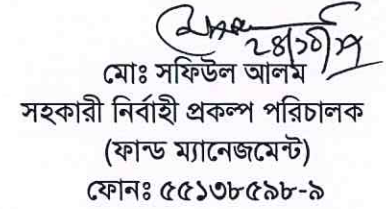 ২৪/১০/২১
মোঃ সফিউল আলম
সহকারী নির্বাহী প্রকল্প পরিচালক
(ফান্ড ম্যানেজমেন্ট)
ফোনঃ ৫৫১৩৮৫৯৮-৯